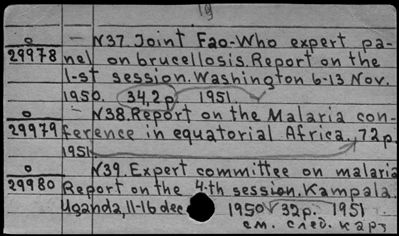 19
0 – N37. Joint Fao-Who expert pa-
29978 nel on brucellosis. Report on the
1-st session. Washington 6-13 Nov.
1950. 34,2p 1951.
0 – N38. Report on the Malaria con-
29979 ference in equatorial Africa. 72p.
1951
0 N39. Expert committee on malaria
29980 Report on the 4-th session. Kampala.
Uganda, 11-16 dec 1950 32p. 1951
см. след. карт